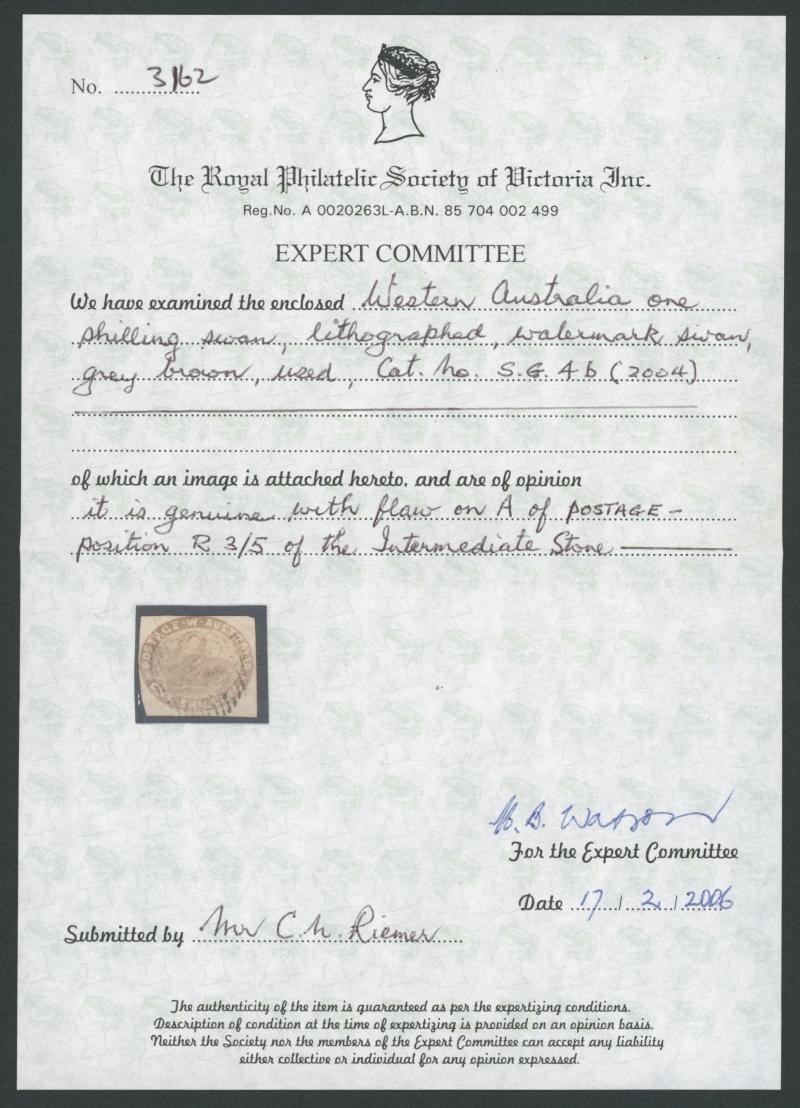 No. 3162
The Royal Philatelic Society of Victoria Inc.
Reg.No. A 0020263L-A.B.N. 85 704 002 499
EXPERT COMMITTEE
We have examined the enclosed Western Australia one
shilling swan, lithographed, watermark swan,
grey brown, used, Cat. No. S.G. 4b (2004)
of which an image is attached hereto, and are of opinion
it is genuine with flaw on A of POSTAGE -
position R 3/5 of the Intermediate Stone
POSTAGE·W·AUSTRALIA
For the Expert Committee
Date 17 / 2 / 2006
Submitted by Mr C. N. Riemer
The authenticity of the item is guaranteed as per the expertizing conditions.
Description of condition at the time of expertizing is provided on an opinion basis.
Neither the Society nor the members of the Expert Committee can accept any liability
either collective or individual for any opinion expressed.